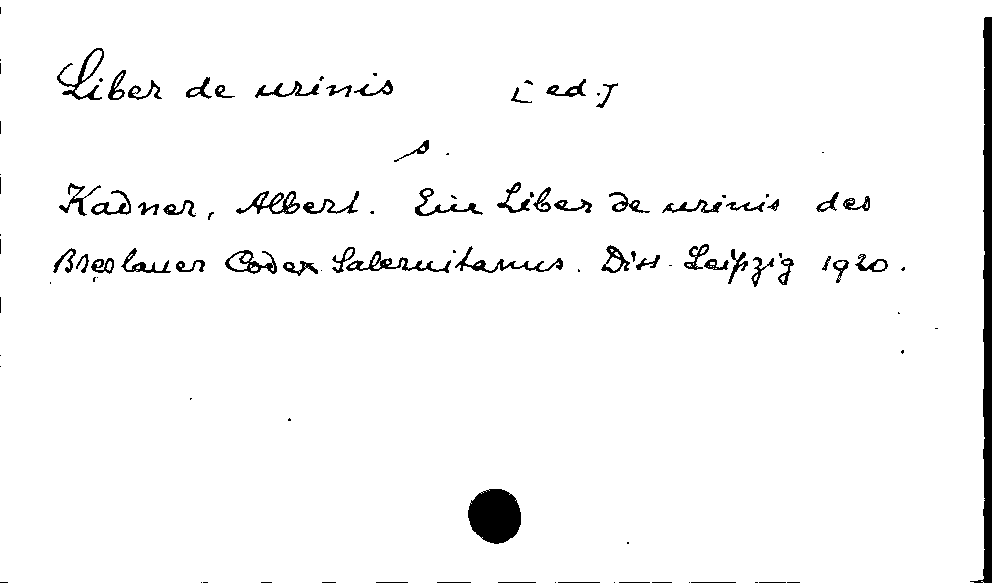 Liber de urinis [ed.]
s.
Kadner, Albert. Ein Liber de urinis des
Breslauer Codex Salernitanus. Diss. Leipzig 1920.